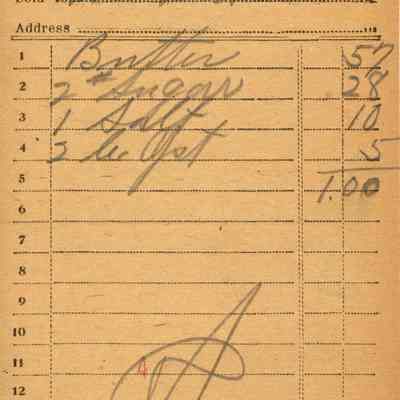 Address
1 Butter 57
2 2 # Sugar 28
3 1 Salt 10
4 2 5
5 1.00
6
7
8
9
10
11 4
12